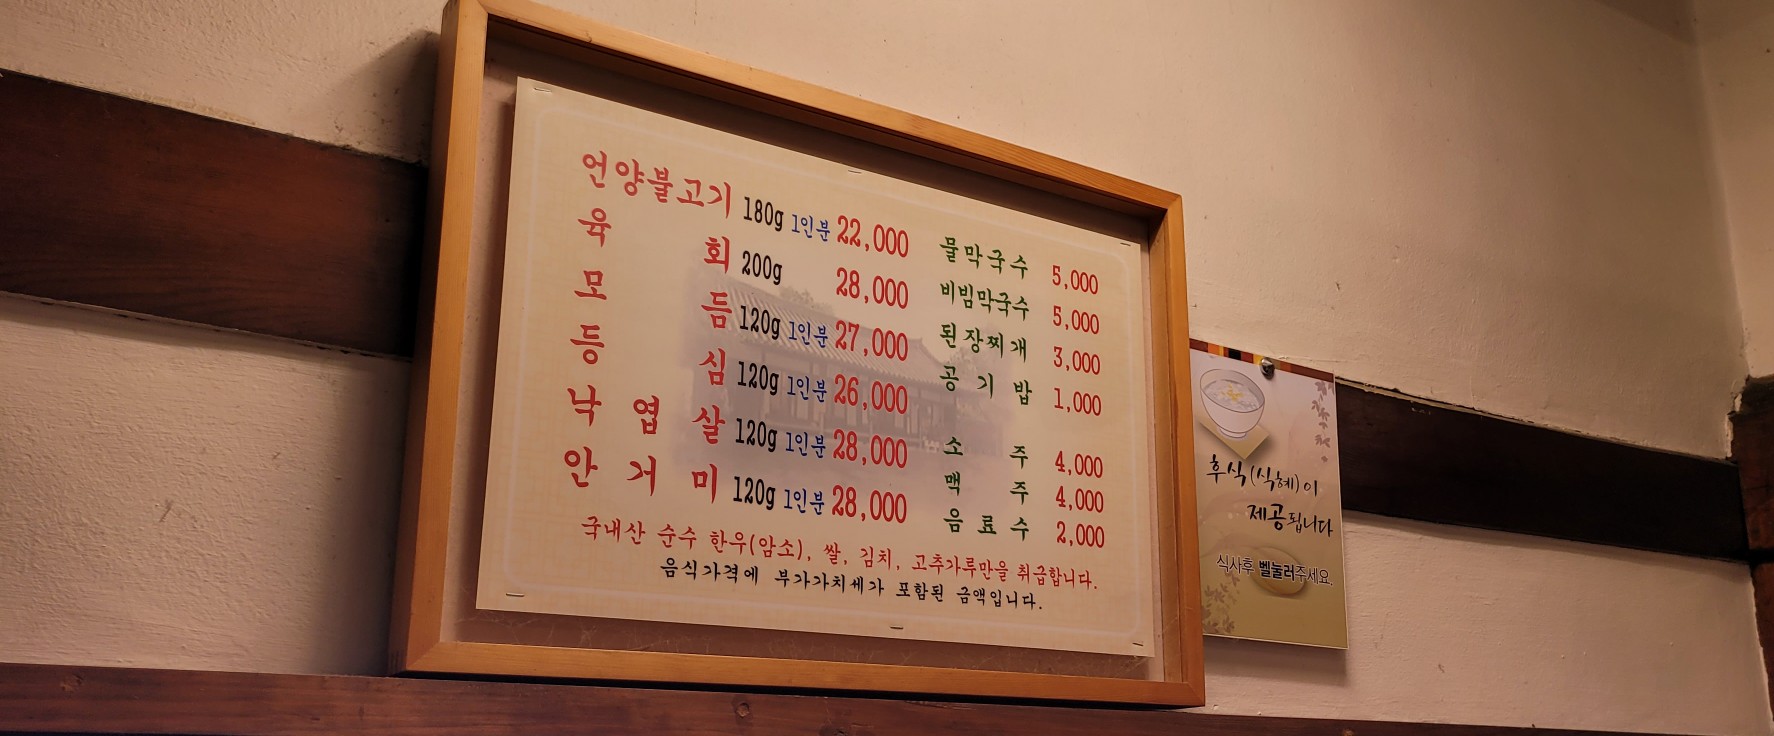 언양불고기 180g 1인분 22,000
육회 200g 28,000
모듬 120g 1인분 27,000
등심 120g 1인분 26,000
낙엽살 120g 1인분 28,000
안거미 120g 1인분 28,000
물막국수 5,000
비빔막국수 5,000
된장찌개 3,000
공기밥 1,000
소주 4,000
맥주 4,000
음료수 2,000
국내산 순수 한우(암소), 쌀, 김치, 고추가루만을 취급합니다.
음식가격에 부가가치세가 포함된 금액입니다.
후식(식혜)이
제공됩니다
식사후 벨눌러주세요.